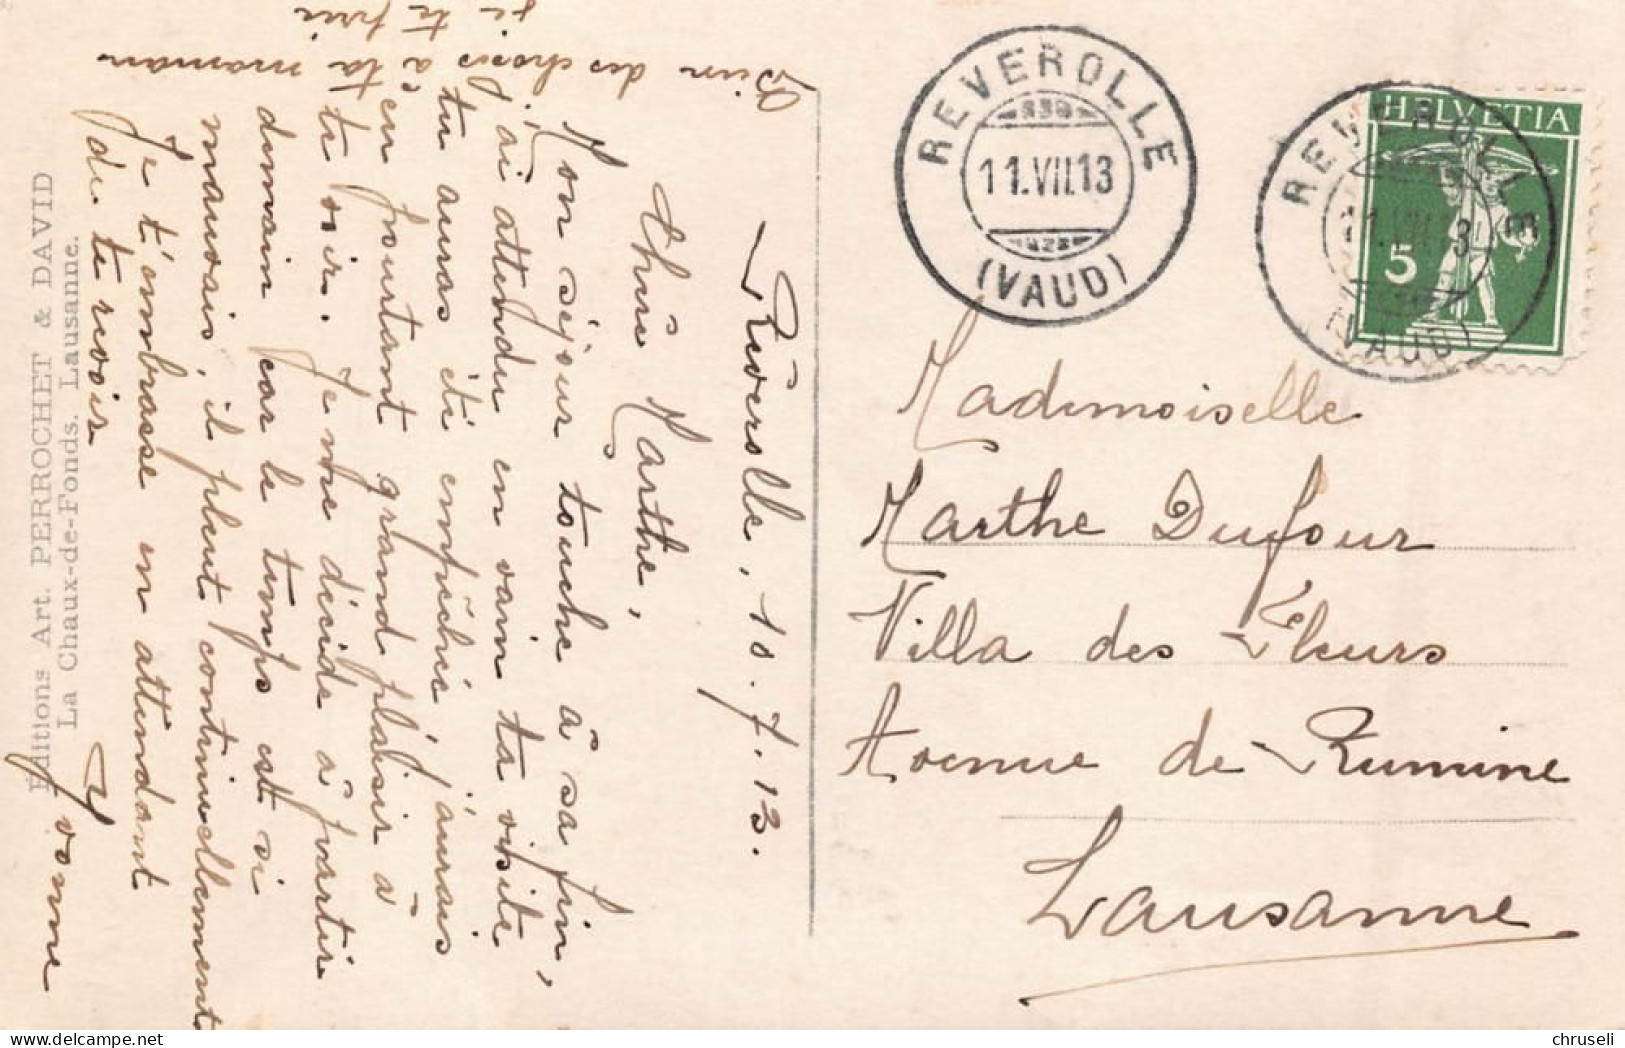 Réverolle, 10.7.13.
Chère Marthe,
Mon séjour touche à sa fin,
j'ai attendu en vain ta visite
tu auras été empêchée j'aurais
eu pourtant grand plaisir à
te voir. Je me décide à partir
demain car le temps est si
mauvais, il pleut continuellement
Je t'embrasse en attendant
de te revoir
Yvonne
Bien des choses à ta maman
je te prie
Éditions Art. PERROCHET & DAVID
La Chaux-de-Fonds. Lausanne.
REVEROLLE
11.VII.13
(VAUD)
HELVETIA
5
REVEROLLE
(VAUD)
Mademoiselle
Marthe Dufour
Villa des Fleurs
Avenue de Rumine
Lausanne
chruseli